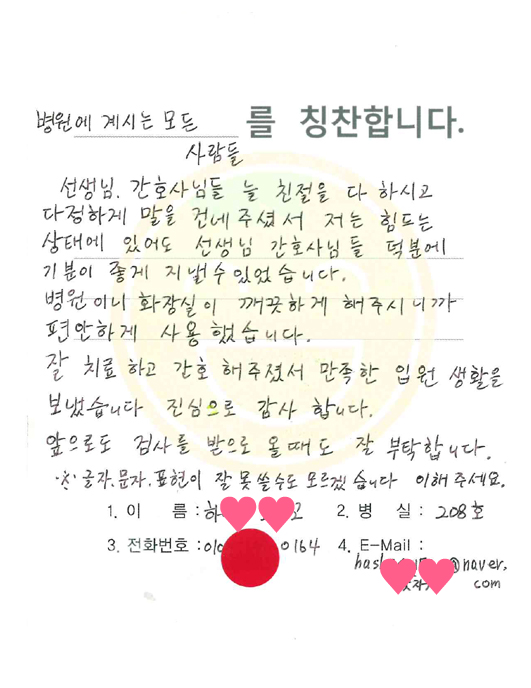 병원에 계시는 모든 를 칭찬합니다.
사람들
선생님. 간호사님들 늘 친절을 다 하시고
다정하게 말을 건네주셨서 저는 힘드는
상태에 있어도 선생님 간호사님들 덕분에
기분이 좋게 지낼수있었습니다.
병원이니 화장실이 깨끗하게 해주시니까
편안하게 사용했습니다.
잘 치료하고 간호해주셨서 만족한 입원 생활을
보냈습니다 진심으로 감사 합니다.
앞으로도 검사를 받으로 올때도 잘 부탁합니다.
※ 글자.문자.표현이 잘 못 쓸수도 모르겠습니다 이해주세요.
1. 이 름 : 하 2. 병 실 : 208호
3. 전화번호 : 010 0164 4. E-Mail :
@naver.
com